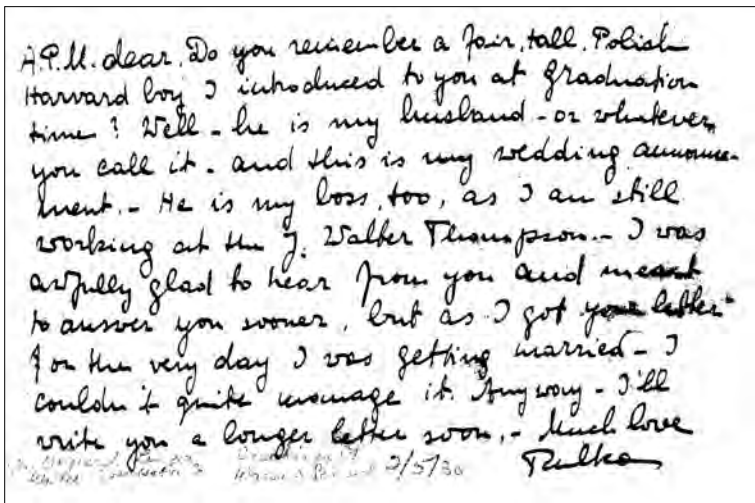 A.P.M. dear. Do you remember a fair, tall, Polish
Harvard boy I introduced to you at graduation
time? Well - he is my husband - or whatever
you call it - and this is my wedding announce-
ment. - He is my boss, too, as I am still
working at the J. Walter Thompson. - I was
awfully glad to hear from you and meant
to answer you sooner, but as I got your letter
for the very day I was getting married - I
couldn't quite manage it. Anyway - I'll
write you a longer letter soon. - Much love
Rulka
2/5/30